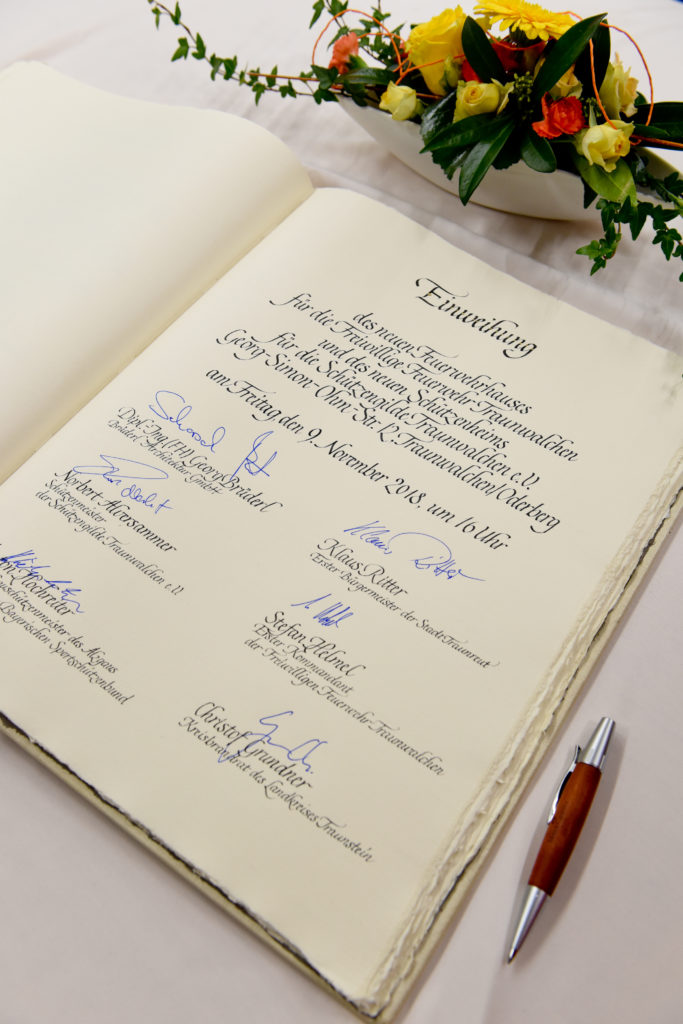 Einweihung
des neuen Feuerwehrhauses
für die Freiwillige Feuerwehr Traunwalchen
und des neuen Schützenheims
für die Schützengilde Traunwalchen e.V.
Georg-Simon-Ohm-Str. 12, Traunwalchen/Oderberg
am Freitag den 9. November 2018, um 16 Uhr
Dipl.-Ing (FH) Georg Brüderl
Brüderl Architektur GmbH
Norbert Alversammer
Schützenmeister
der Schützengilde Traunwalchen e.V.
Hochreiter
schützenmeister des Alzgaus
Bayerischen Sportschützenbund
Klaus Ritter
Klaus Ritter
Erster Bürgermeister der Stadt Traunreut
Stefan Helmel
Erster Kommandant
der Freiwilligen Feuerwehr Traunwalchen
Christof Grundner
Kreisbrandrat des Landkreises Traunstein